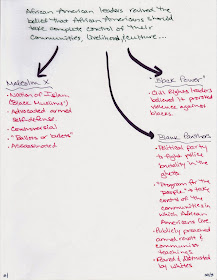 African American leaders revived the
belief that African Americans should
take complete control of their
communities, livelihood, culture...
Malcolm X
• Nation of Islam
(Black Muslims)
• Advocated armed
self-defense
• Controversial
• "Ballots or bullets"
• Assassinated
"Black Power"
• Civil Rights leaders
believed it provoked
violence against
blacks.
Black Panthers
• Political party
to fight police
brutality in the
ghetto
• "Program for the
People" → take
control of the
communities in
which African
Americans live
• Publicly
armed revolt &
communist
teachings
• Feared & distrusted
by whites